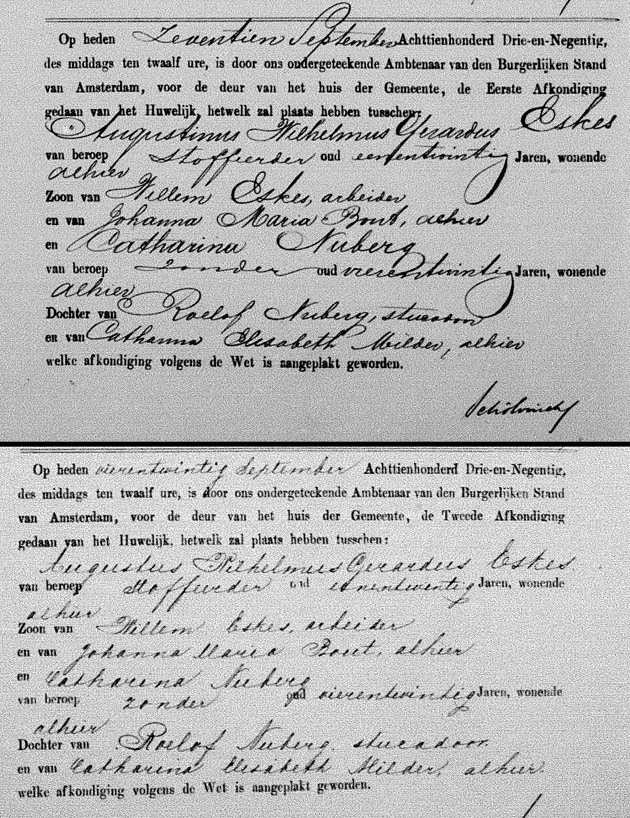 Op heden Zeventien September Achttienhonderd Drie-en-Negentig,
des middags ten twaalf ure, is door ons ondergeteekende Ambtenaar van den Burgerlijken Stand
van Amsterdam, voor de deur van het huis der Gemeente, de Eerste Afkondiging
gedaan van het Huwelijk, hetwelk zal plaats hebben tusschen:
Augustinus Wilhelmus Gerardus Eskes
van beroep stoffeerder oud eenentwintig Jaren, wonende
alhier
Zoon van Willem Eskes, arbeider
en van Johanna Maria Bout, alhier
en Catharina Nuberg
van beroep zonder oud vierentwintig Jaren, wonende
alhier
Dochter van Roelof Nuberg, stucadoor
en van Catharina Elisabeth Milder, alhier
welke afkondiging volgens de Wet is aangeplakt geworden.
Op heden vierentwintig September Achttienhonderd Drie-en-Negentig,
des middags ten twaalf ure, is door ons ondergeteekende Ambtenaar van den Burgerlijken Stand
van Amsterdam, voor de deur van het huis der Gemeente, de Tweede Afkondiging
gedaan van het Huwelijk, hetwelk zal plaats hebben tusschen:
Augustus Wilhelmus Gerardus Eskes
van beroep stoffeerder oud eenentwintig Jaren, wonende
alhier
Zoon van Willem Eskes, arbeider
en van Johanna Maria Bout, alhier
en Catharina Nuberg
van beroep zonder oud vierentwintig Jaren, wonende
alhier
Dochter van Roelof Nuberg, stucadoor
en van Catharina Elisabeth Milder, alhier.
welke afkondiging volgens de Wet is aangeplakt geworden.